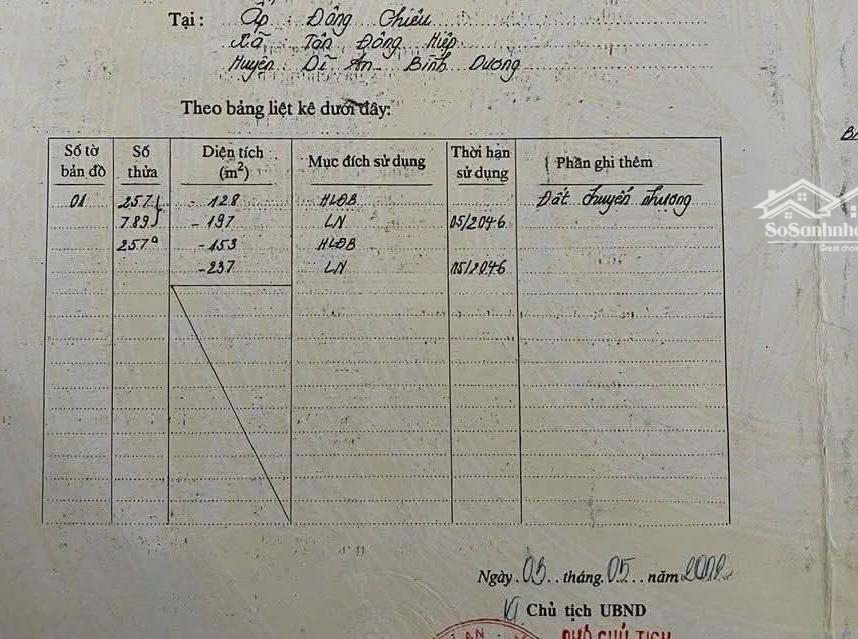 Tại: Ấp Đông Chiêu
Xã Tân Đông Hiệp
Huyện Dĩ An Bình Dương
Theo bảng liệt kê dưới đây:
Số tờ bản đồ Số thửa Diện tích (m²) Mục đích sử dụng Thời hạn sử dụng Phần ghi thêm
01 257 - 128 HLĐB Đất chuyển nhượng
789 - 197 LN 05/2046
257 - 153 HLĐB
- 237 LN 05/2046
Ngày 03 tháng 05 năm
Chủ tịch UBND
PHÓ CHỦ TỊCH
SoSanhnh
Great choi